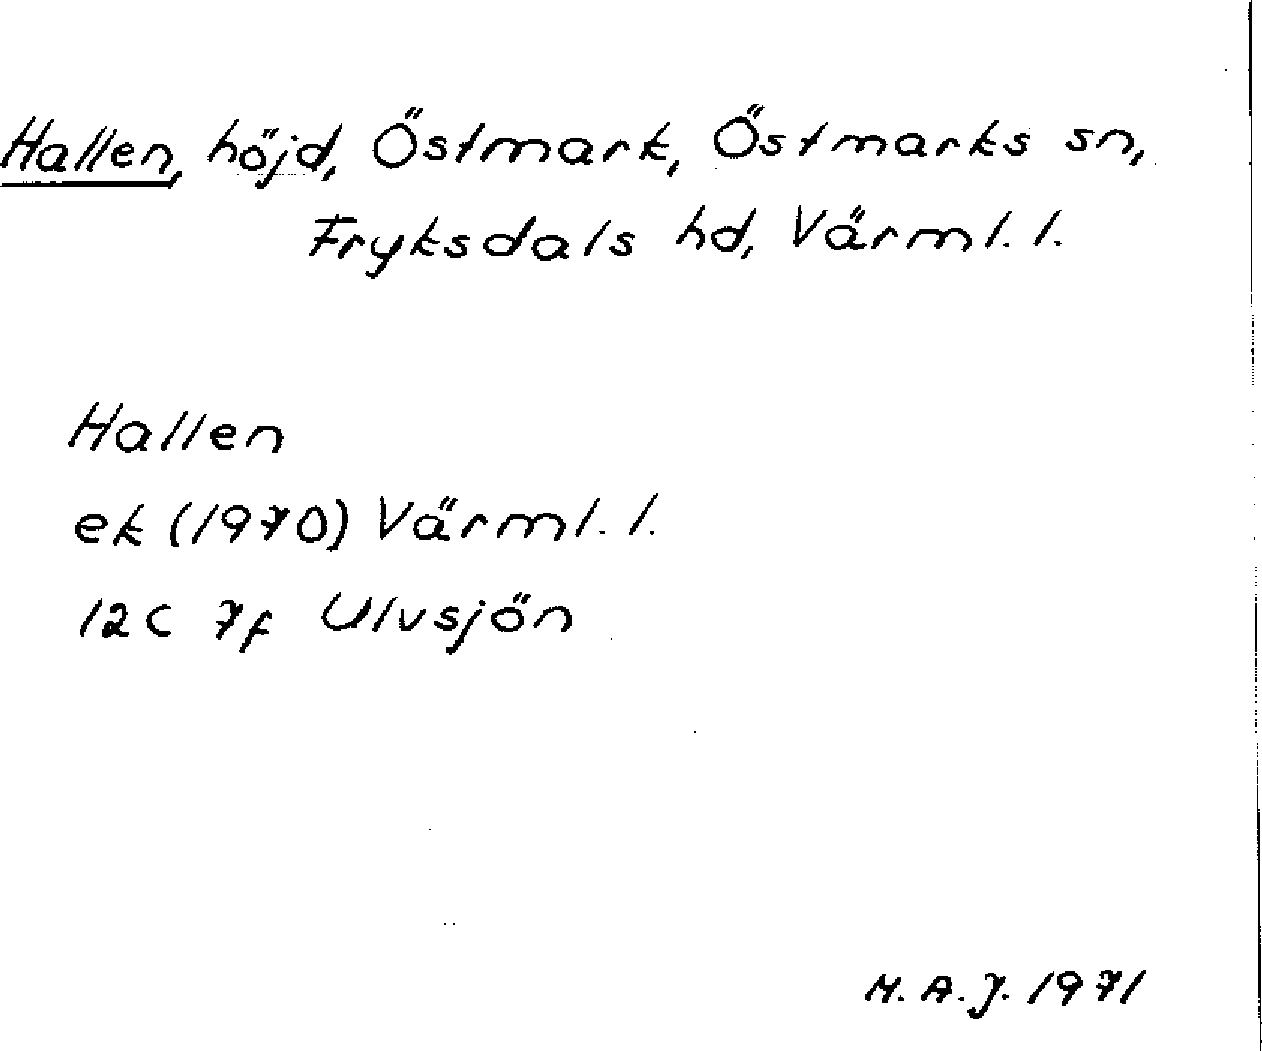 Hallen, höjd, Östmark, Östmarks sn,
Fryksdals hd, Värml. l.
Hallen
ek (1970) Värml. l.
12C 7f Ulvsjön
M. A. J. 1971